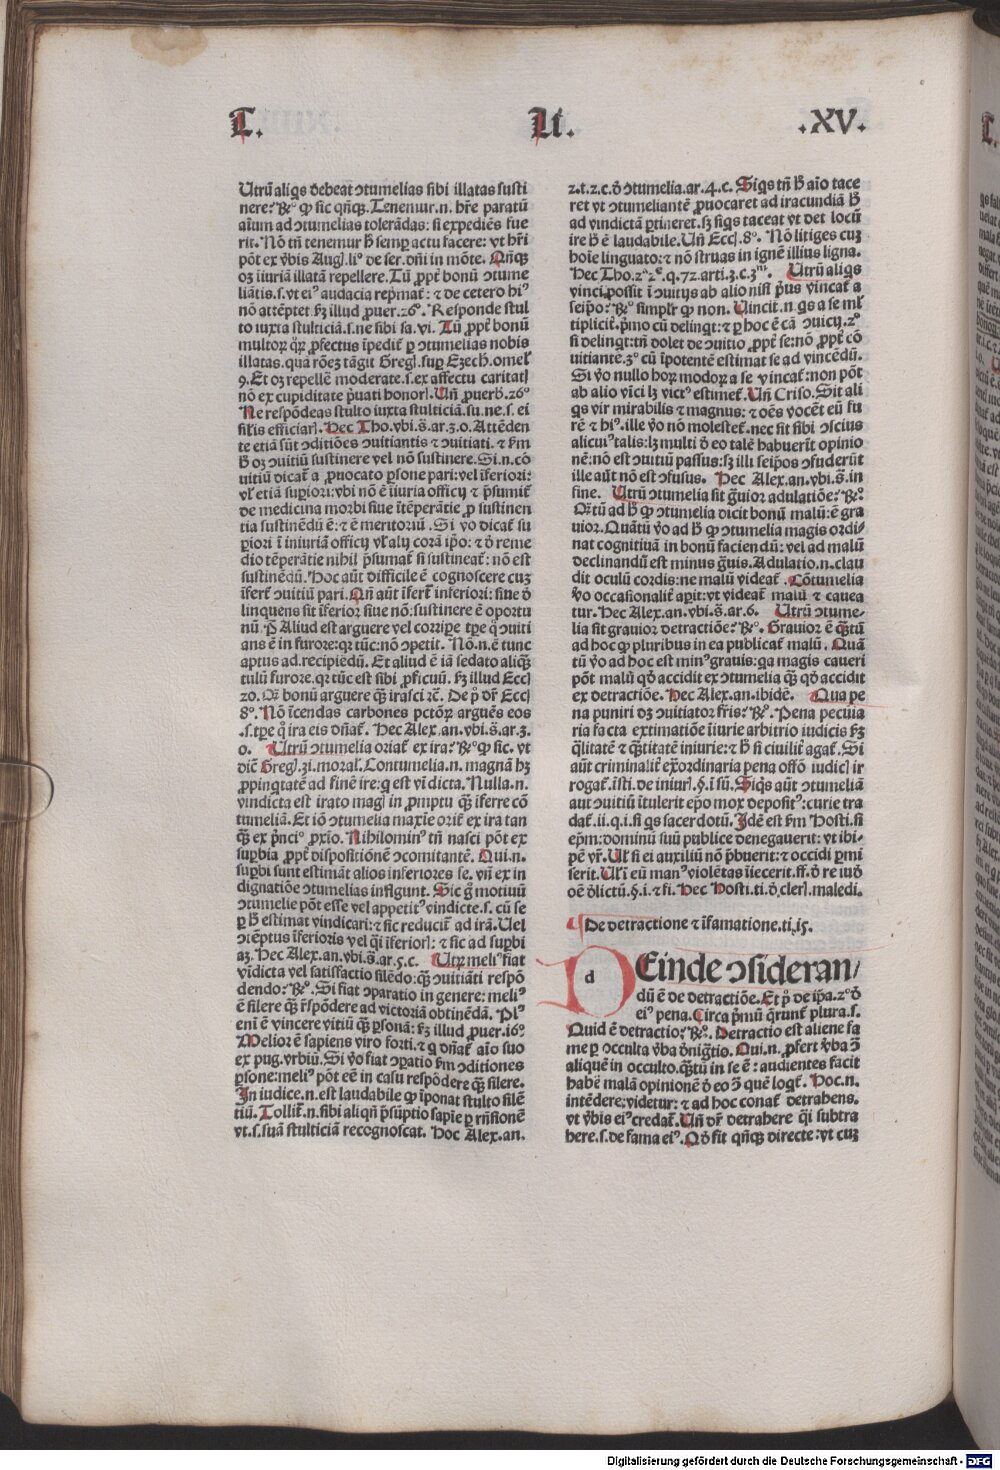 L. Li. .XV.
Utrū aliqs debeat ↄtumelias sibi illatas susti
nere? Rº qp sic qñqꝫ. Tenemur.n. hr̄e paratū
aīum ad ↄtumelias tolerādas: si expediēs fue
rit. Nō tñ tenemur h̄ semp actu facere: vt hr̄i
pōt ex v̄bis Augl. liº de ser. dn̄i in mōte. Qn̄qꝫ
oꝫ iiuriā illatā repellere. Tū ꝓpt̄ bonū ↄtume
liātis.s. vt eiꝰ audacia rep̄mat̄: ⁊ de cetero hiꝰ
nō attēptet. fꝫ illud ꝓuer.26º. Responde stul
to iuxta stulticiā.s. ne sibi sa. vi. Tū ꝓpt̄ bonū
multoꝝ qꝝ ꝓfectus īpedit̄ ꝑ ↄtumelias nobis
illatas. quā rōeꝫ tāgit Gregl. suꝑ Ezech. omel.
9. Et oꝫ repellē moderate.s. ex affectu caritatl
nō ex cupiditate p̄uati honorl. Un̄ ꝓuerb.26º
Ne respōdeas stulto iuxta stulticiā.su.ne.s. ei
similis efficiarl. Hec Tho.vbi.s̄.ar.3.o. Attēden
te etiā sūt ↄditiões ↄuitiantis ⁊ ↄuitiati. ⁊ fm
h̄ oꝫ ↄuitiū sustinere vel nō sustinere. Si.n.cō
uitiū dicat̄ a ꝓuocato ꝑsone pari: vel īferiori:
vl̄ etiā suꝑiori: vbi nō ē iiuria officij ⁊ p̄sumit̄
de medicina morbi siue ītēꝑātie ꝓ sustinen
tia sustinēdū ē: ⁊ ē meritoriū. Si v̊o dicat̄ su
ꝑiori ī iniuriā officij vl̄ alij corā ip̄o: ⁊ d̄ reme
dio tēꝑātie nihil p̄sumat̄ si sustineat̄: nō est
sustinēdū. Hoc aūt difficile ē cognoscere cuꝫ
īfert̄ ↄuitiū pari. Qn̄ aūt īfert̄ inferiori: siue d̄
linquens sit īferior siue nō: sustinere ē oportu
nū. P̄ Aliud est arguere vel corriꝑe tꝑe q̊ ↄuiti
ans ē in furore: qꝛ tūc: nō ↄpetit. Nō.n. ē tunc
aptus ad.recipiēdū. Et aliud ē iā sedato aliqꝫ
tulū furore. qꝛ tūc est sibi ꝓficuū. fꝫ illud Eccl
20. Qꝫ bonū arguere qꝫ irasci ⁊c. De p̊ dr̄ Eccl
8º. Nō īcendas carbones pctōꝝ arguēs eos
.s. tꝑe q̊ ira eis dn̄at̄. Hec Alex.an.vbi.s̄.ar.3.
o. Utrū ↄtumelia oriat̄ ex ira? Rº qp sic. vt
dic̄ Gregl. 3i. moral. Contumelia.n. magnā hꝫ
ꝓpinqtatē ad finē ire: q est vīdicta. Nulla.n.
vindicta est irato magl in ꝓmptu qꝫ īferre cō
tumeliā. Et iō ↄtumelia maxīe orit̄ ex ira tan
qꝫ ex p̄nciº ꝓxīo. Nihilominꝰ tñ nasci pōt ex
suꝑbia ꝓpt̄ dispositiōnē ↄcomitantē. Qui.n.
suꝑbi sunt estimāt alios inferiores se. vn̄ ex in
dignatiōe ↄtumelias infligunt. Sic g̊ motiuū
ↄtumelie pōt esse vel appetitꝰ vindicte.s. cū se
ꝑ h̄ estimat vindicari: ⁊ sic reducit̄ ad irā. Uel
ↄtēptus īferioris vel qi īferiorl: ⁊ sic ad suꝑbi
aꝫ. Hec Alex.an.vbi.s̄.ar.5.c. Utꝝ meliꝰ fiat
vīdicta vel satisfactio silēdo: qꝫ ↄuitiāti respō
dendo? Rº. Si fiat ↄparatio in genere: meliꝰ
ē silere qꝫ r̄spōdere ad victoriā obtinēdā. Plꝰ
eni ē vincere vitiū qꝫ ꝑsonā: fꝫ illud ꝓuer.16º
Melior ē sapiens viro forti. ⁊ q dn̄at̄ aīo suo
ex pug. vrbiū. Si v̊o fiat ↄꝑatio fm ↄditiones
ꝑsone: meliꝰ pōt eē in casu respōdere qꝫ silere.
In iudice.n. est laudabile qp īponat stulto silē
tiū. Tollit̄.n. sibi aliqn̄ p̄sūptio sapīe ꝑ rn̄sionē
vt.s. suā stulticiā recognoscat. Hoc Alex.an.
2.t.2.c.d̄ ↄtumelia.ar.4.c. Siqs tñ h̄ aīo tace
ret vt ↄtumeliantē ꝓuocaret ad iracundiā h̄
ad vindictā ꝑtineret. sꝫ siqs taceat vt det locū
ire h̄ ē laudabile. Un̄ Eccl.8º. Nō litiges cuꝫ
hoīe linguato: ⁊ nō struas in ignē illius ligna.
Hec Tho.2ª2ᵉ.q.72.arti.3.c.3ᵐ. Utrū aliqs
vinci possit ī ↄuitijs ab alio nisi p̄us vincat̄ a
seip̄o? Rº simplr̄ qp non. Uincit.n. qs a se ml̄
tiplicit̄. p̄mo cū delinqt: ⁊ ꝑ hoc ē cā ↄuicij. 2º
si delinqt: tñ dolet de ↄuitio ꝓpt̄ se: nō ꝓpt̄ cō
uitiante. 3º cū īpotentē estimat se ad vincēdū.
Si v̊o nullo hoꝝ modoꝝ a se vincat̄: non pōt
ab alio vīci lꝫ victꝰ estimet̄. Un̄ Criso. Sit ali
qs vir mirabilis ⁊ magnus: ⁊ oēs vocēt eū fu
rē ⁊ hiꝰ. ille v̊o nō molestet̄. nec sit sibi ↄscius
alicuiꝰ talis: lꝫ multi d̄ eo talē habuerīt opinio
nē: nō est ↄuitiū passus: sꝫ illi seip̄os ↄfuderūt
ille aūt nō est ↄfusus. Hec Alex.an.vbi.s̄.in
fine. Utrū ↄtumelia sit g̊uior adulatiōe? Rº.
Qꝫtū ad h̄ qp ↄtumelia dicit bonū malū: ē gra
uior. Quātū v̊o ad h̄ qp ↄtumelia magis ordi
nat cognitiuā in bonū faciendū: vel ad malū
declinandū est minus g̊uis. Adulatio.n. clau
dit oculū cordis: ne malū videat̄. Cōtumelia
v̊o occasionalit̄ aꝑit: vt videat̄ malū ⁊ cauea
tur. Hec Alex.an.vbi.s̄.ar.6. Utrū ↄtume-
lia sit grauior detractiōe? Rº. Grauior ē qꝫtū
ad hoc qp pluribus in ea publicat̄ malū. Quā
tū v̊o ad hoc est minꝰ grauis: qa magis caueri
pōt malū qd̄ accidit ex ↄtumelia qꝫ qd̄ accidit
ex detractiōe. Hec Alex.an.ibidē. Qua pe
na puniri dꝫ ↄuitiator fr̄is? Rº. Pena pecuia
ria facta extimatiōe iiurie arbitrio iudicis fꝫ
q̄litatē ⁊ qꝫtitatē iniurie: ⁊ h̄ si ciuilit̄ agat̄. Si
aūt criminalit̄ ex̄ordinaria pena offō iudicl ir
rogat̄. īsti. de iniurl. §.i.ī fi. Siqs aūt ↄtumeliā
aut ↄuitiū ītulerit ep̄o mox depositꝰ: curie tra
dat̄. ii.q.i. si qs sacerdotū. Idē est fm Hosti. si
ep̄m: dominū suū publice denegauerit: vt ibi-
pē vr̄. Ul̄ si ei auxiliū nō p̄buerit: ⁊ occidi ꝑmi
serit. Ul̄ ī eū manꝰ violētas iiecerit. ff. d̄ re iud̄
oē d̄lictū. §.i.⁊ fi. Hec Hosti.ti.d̄.clerl.maledi.
De detractione ⁊ īfamatione.ti.is.
d
DEinde ↄsideran/
dū ē de detractiōe. Et p̊ de ip̄a. 2º d̄
eiꝰ pena. Circa p̄mū q̄runt̄ plura.s.
Quid ē detractio? Rº. Detractio est aliene fa
me ꝑ occulta v̄ba d̄nigr̄tio. Qui.n. ꝓfert v̄ba ↄ̄
aliquē in occulto. qꝫtū in se ē: audientes facit
habē malā opinionē d̄ eo ↄ̄ quē loqt̄. Hoc.n.
intēdere: videtur: ⁊ ad hoc conat̄ detrahens.
vt v̄bis eiꝰ credat̄. Un̄ dr̄ detrahere qi subtra
here.s. de fama eiꝰ. Qd̄ fit qn̄qꝫ directe: vt cuꝫ
Digitalisierung gefördert durch die Deutsche Forschungsgemeinschaft - DFG